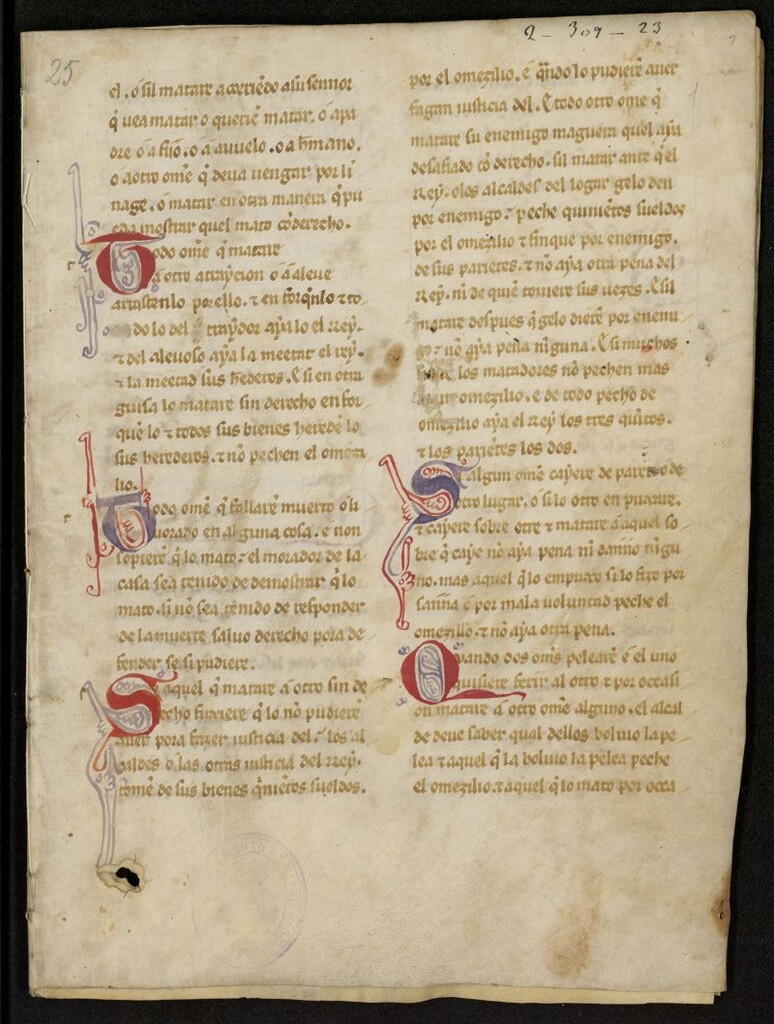 2 - 309 - 23
25
el. o sil matare acorriẽdo a su sennor
q̃ vea matar o querie matar. o a pa
dre o a fijo. o a auuelo. o a h̃mano.
o a otro om̃e q̃ deua uengar por li
nage. o matar en otra manera q̃ pu
eda mostrar quel mato cõ derecho.
Todo om̃e q̃ matare
a otro a trayçion o a aleue
arrastenlo por ello. ⁊ en forq̃nlo ⁊ to
do lo del traydor aya lo el Rey.
⁊ del aleuoso aya la meetat el rey.
⁊ la meetad sus h̃ederos. E si en otra
guisa lo matare sin derecho en for
quẽ lo ⁊ todos sus bienes herede lo
sus herederos. ⁊ nõ pechen el omezi
lio.
Todo om̃e q̃ fallarẽ muerto o li
uorado en alguna cosa. e non
sopierẽ q̃ lo mato: el morador de la
casa sea tenido de demostrar q̃ lo
mato. si nõ sea tenido de responder
de la muerte saluo derecho pora de
fender se si pudiere.
Si aquel q̃ matare a otro sin de
recho fuxiere q̃ lo nõ pudierẽ
auer pora fazer iusticia del: los al
caldes o las otras iusticia del Rey.
tomẽ de sus bienes q̃niẽtos sueldos.
por el omezilio. e q̃ndo lo pudierẽ auer
fagan iusticia del. E todo otro om̃e q̃
matare su enemigo maguera quel aya
desafiado cõ derecho. sil matar ante q̃ el
Rey. o los alcaldes del logar gelo den
por enemigo: peche quiniẽtos sueldos
por el omezilio ⁊ finque por enemigo.
de sus pariẽtes. ⁊ nõ aya otra pena del
Rey. ni de quiẽ touiere sus uezes. E sil
matare despues q̃ gelo dierẽ por enemi
go: nõ aya pena niguna. E si muchos
los matadores nõ pechen mas
un omezilio. e de todo pecho de
omezilio aya el Rey los tres quĩtos.
⁊ los pariẽtes los dos.
Si algun om̃e cayere de pared o de
otro lugar. o si lo otro en puxare.
⁊ cayere sobre otre ⁊ matare a aquel so
bre q̃ caye nõ aya pena ni danno nigu
no. mas aquel q̃ lo empuxo si lo fizo por
sanna o por mala uoluntad peche el
omezillo. ⁊ nõ aya otra pena.
Quando dos om̃s pelearẽ e el uno
quisiere ferir al otro ⁊ por occasi
on matare a otro om̃e alguno. el alcal
de deue saber qual dellos boluio la pe
lea ⁊ aquel q̃ la boluio la pelea peche
el omezilio. ⁊ aquel q̃ lo mato por occa